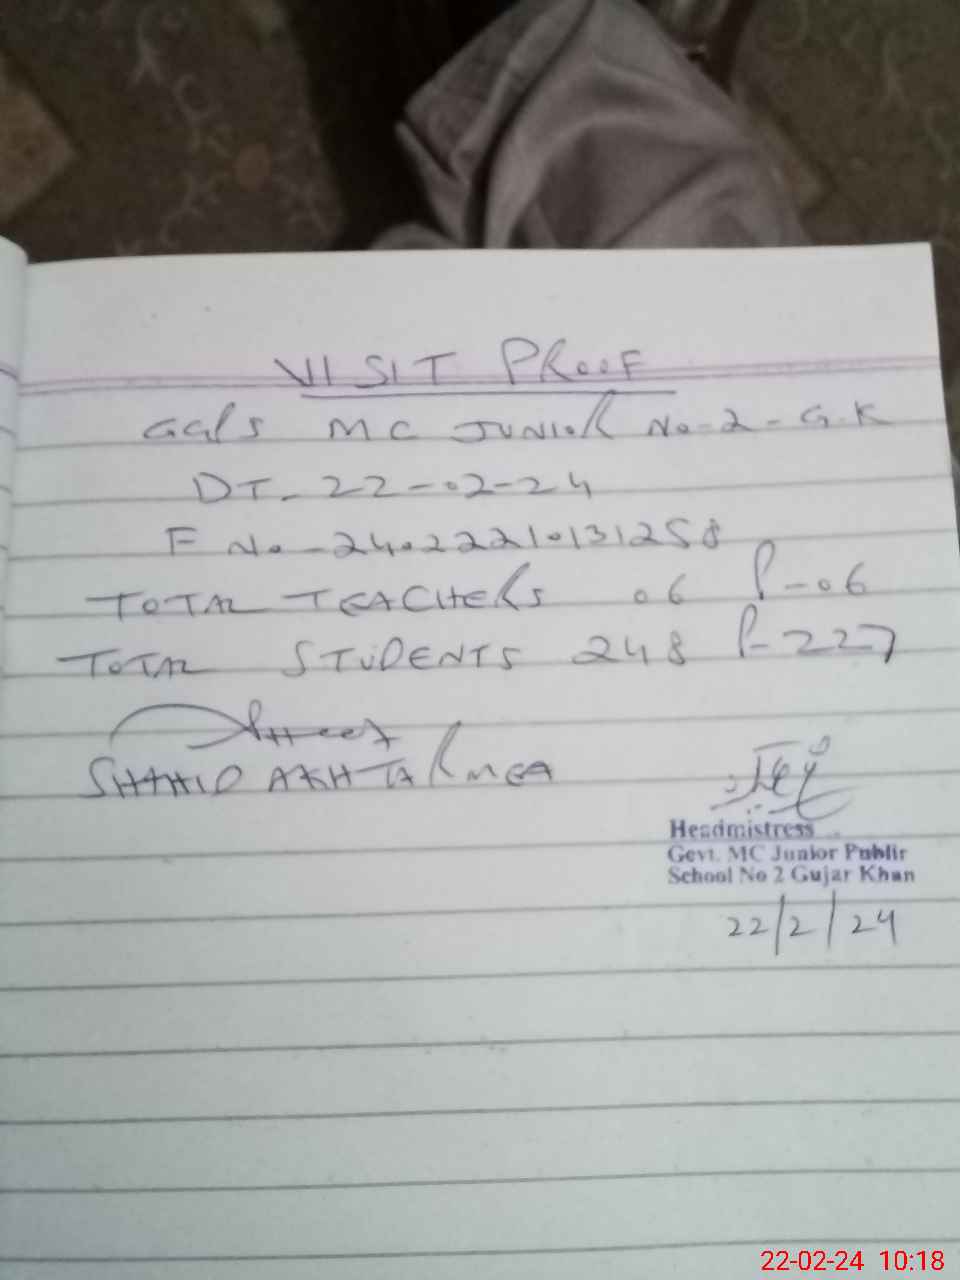 VISIT PROOF
GGPS MC JUNIOR No-2-G.K
DT- 22-02-24
F No-24022210131258
TOTAL TEACHERS 06 P-06
TOTAL STUDENTS 248 P-227
SHAHID AKHTAR MEA
Headmistress
Govt. MC Junior Public
School No 2 Gujar Khan
22/2/24
22-02-24 10:18